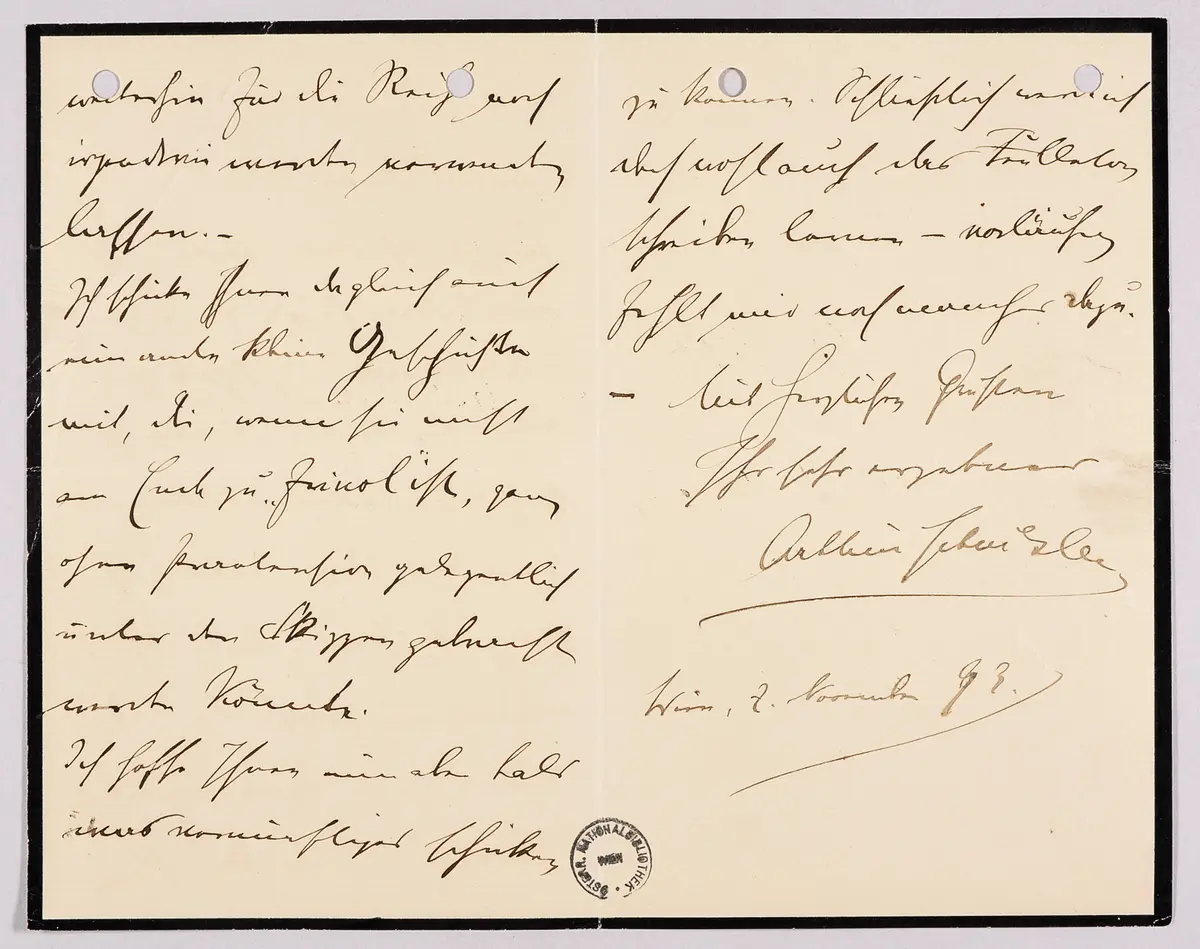 weiterhin für die Reihe noch
irgendwie werden verwenden
lassen. –
Ich schicke Ihnen da gleich auch
eine andre kleine Geschichte
mit, die, wenn sie nicht
am Ende zu „frivol“ ist, ganz
ohne Praetension gelegentlich
unter den Skizzen gebracht
werden könnte.
Ich hoffe Ihnen nun aber bald
was vernünftiges schicken
zu können. Schließlich werd ich
doch wohl auch das Feuilleton
schreiben lernen – vorläufig
fehlt mir noch mancherlei dazu.
– Mit herzlichen Grüßen
Ihr sehr ergebener
Arthur Schnitzler
Wien, 2. November 93.
ÖSTERR. NATIONALBIBLIOTHEK
WIEN